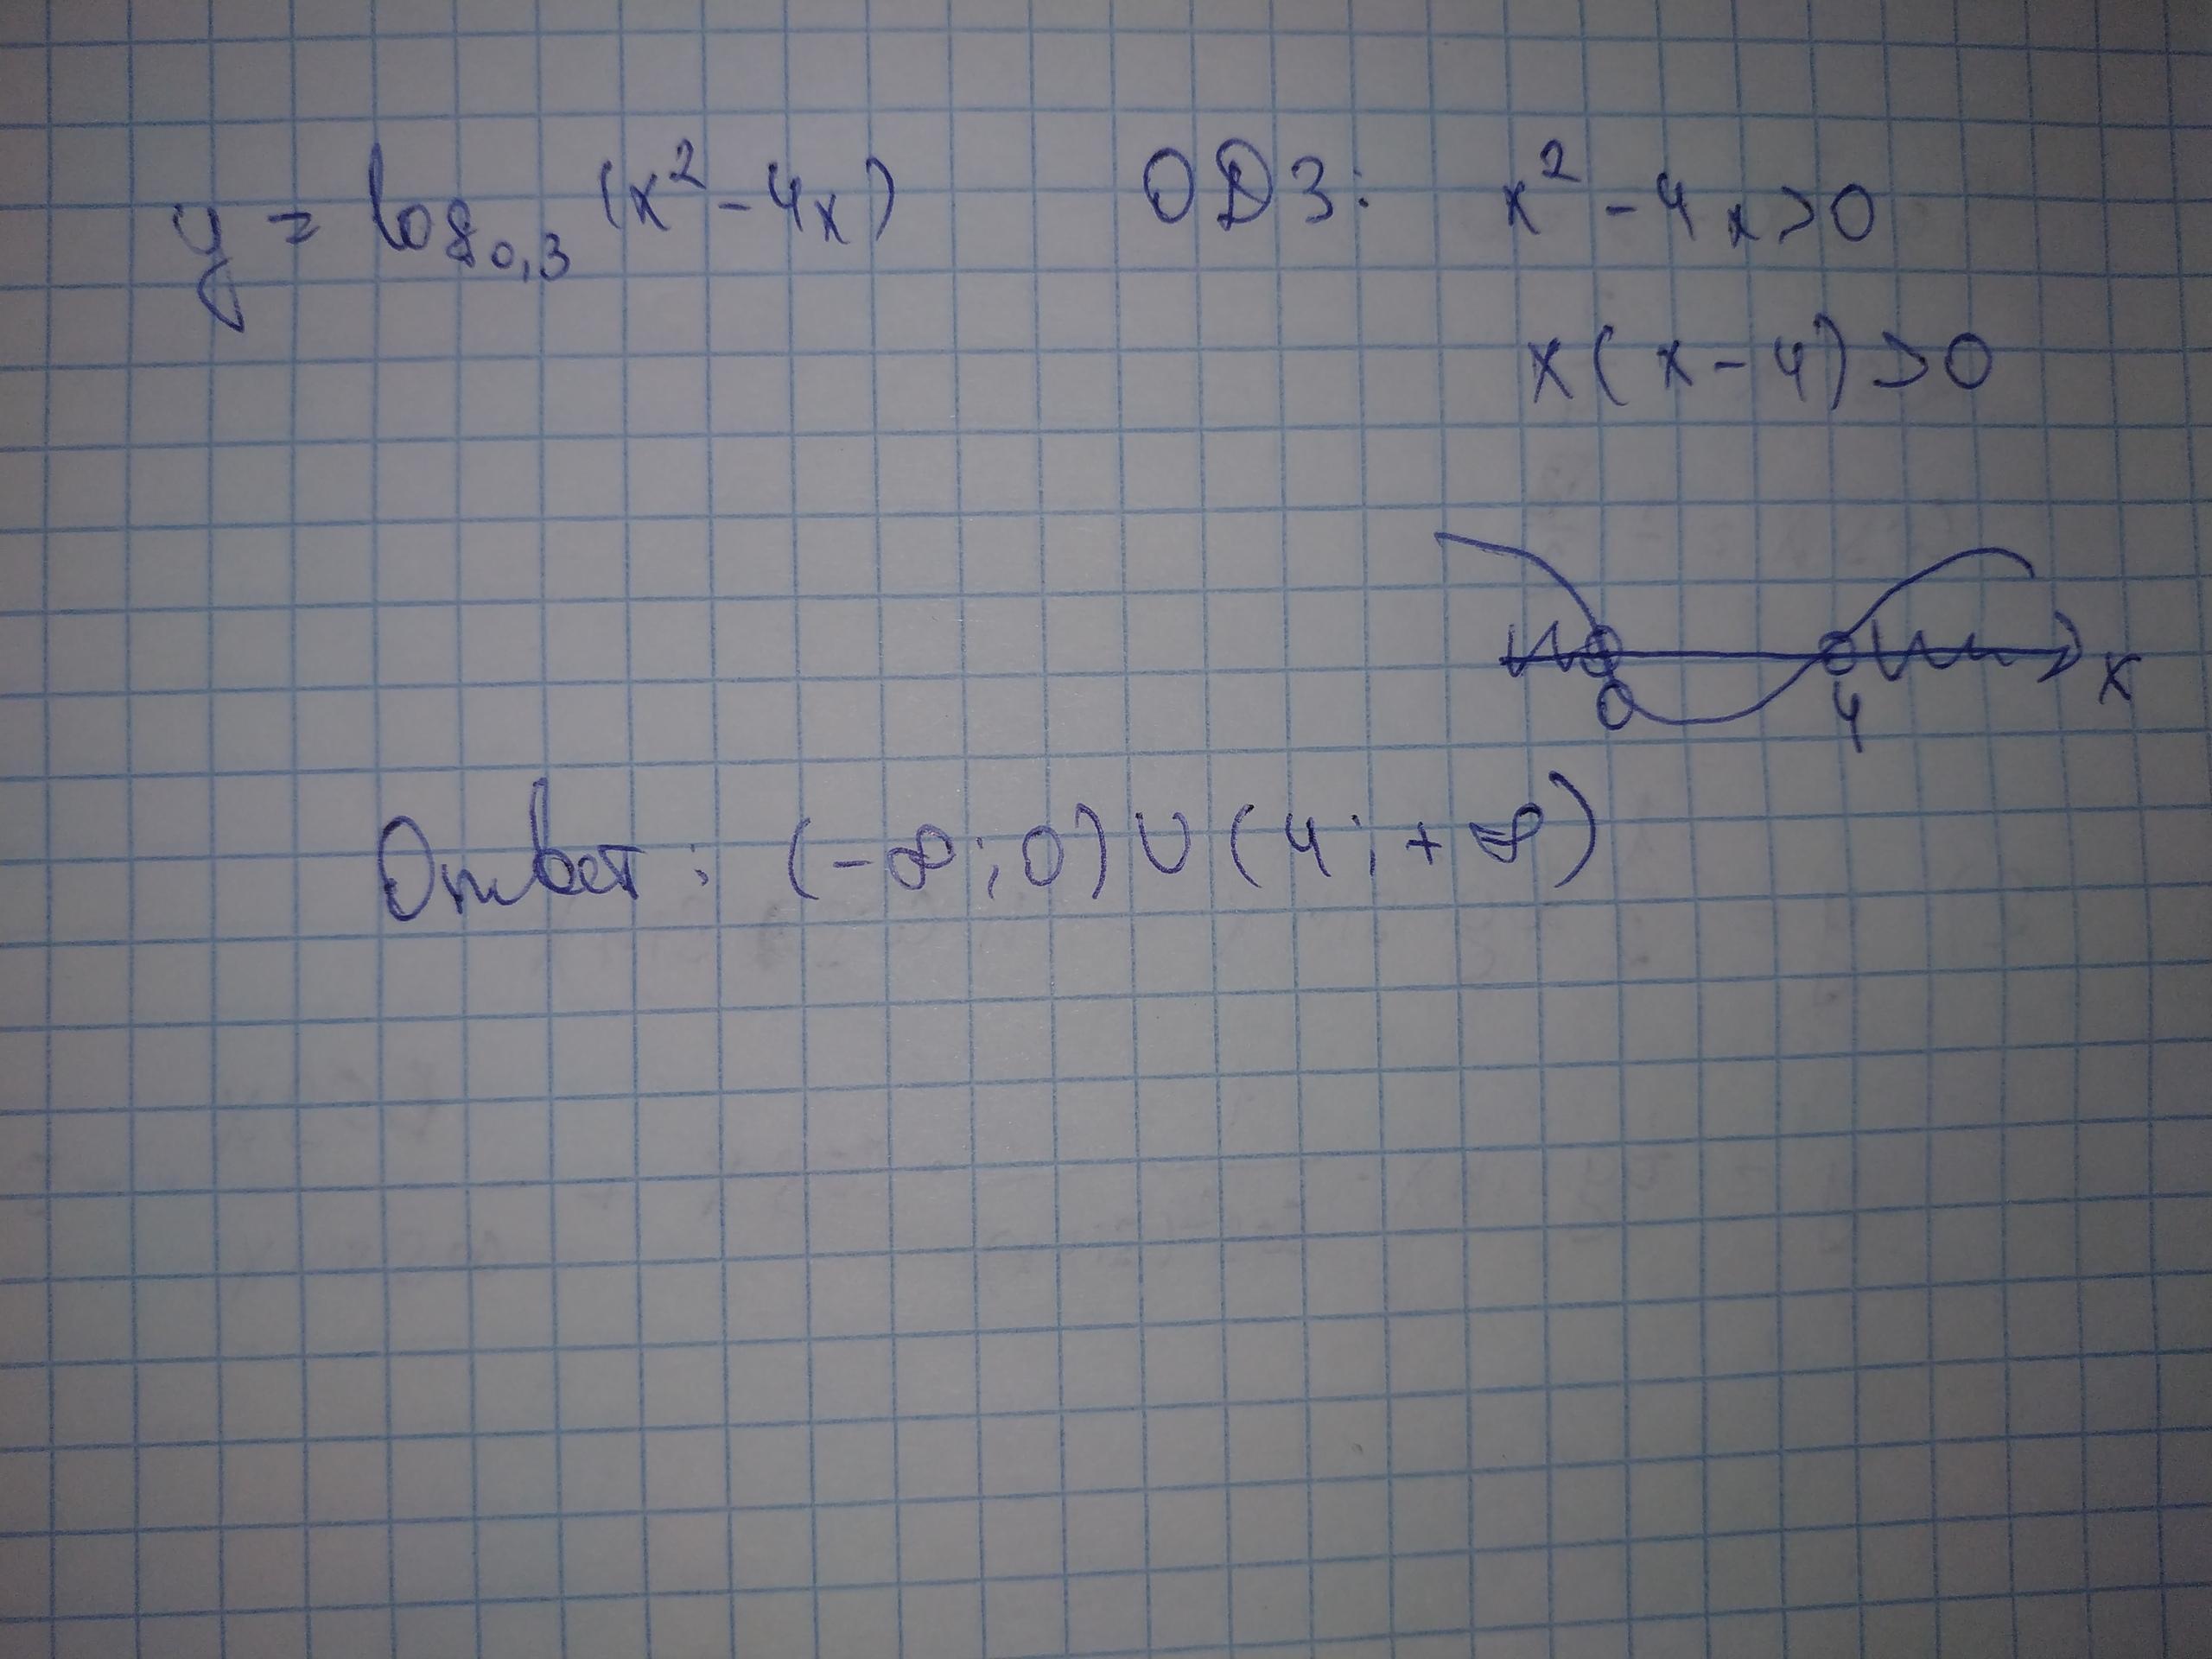 y = log₀,₃ (x² - 4x) ОДЗ: x² - 4x > 0
x(x - 4) > 0
x
0 4
Ответ: (-∞; 0) ∪ (4; +∞)